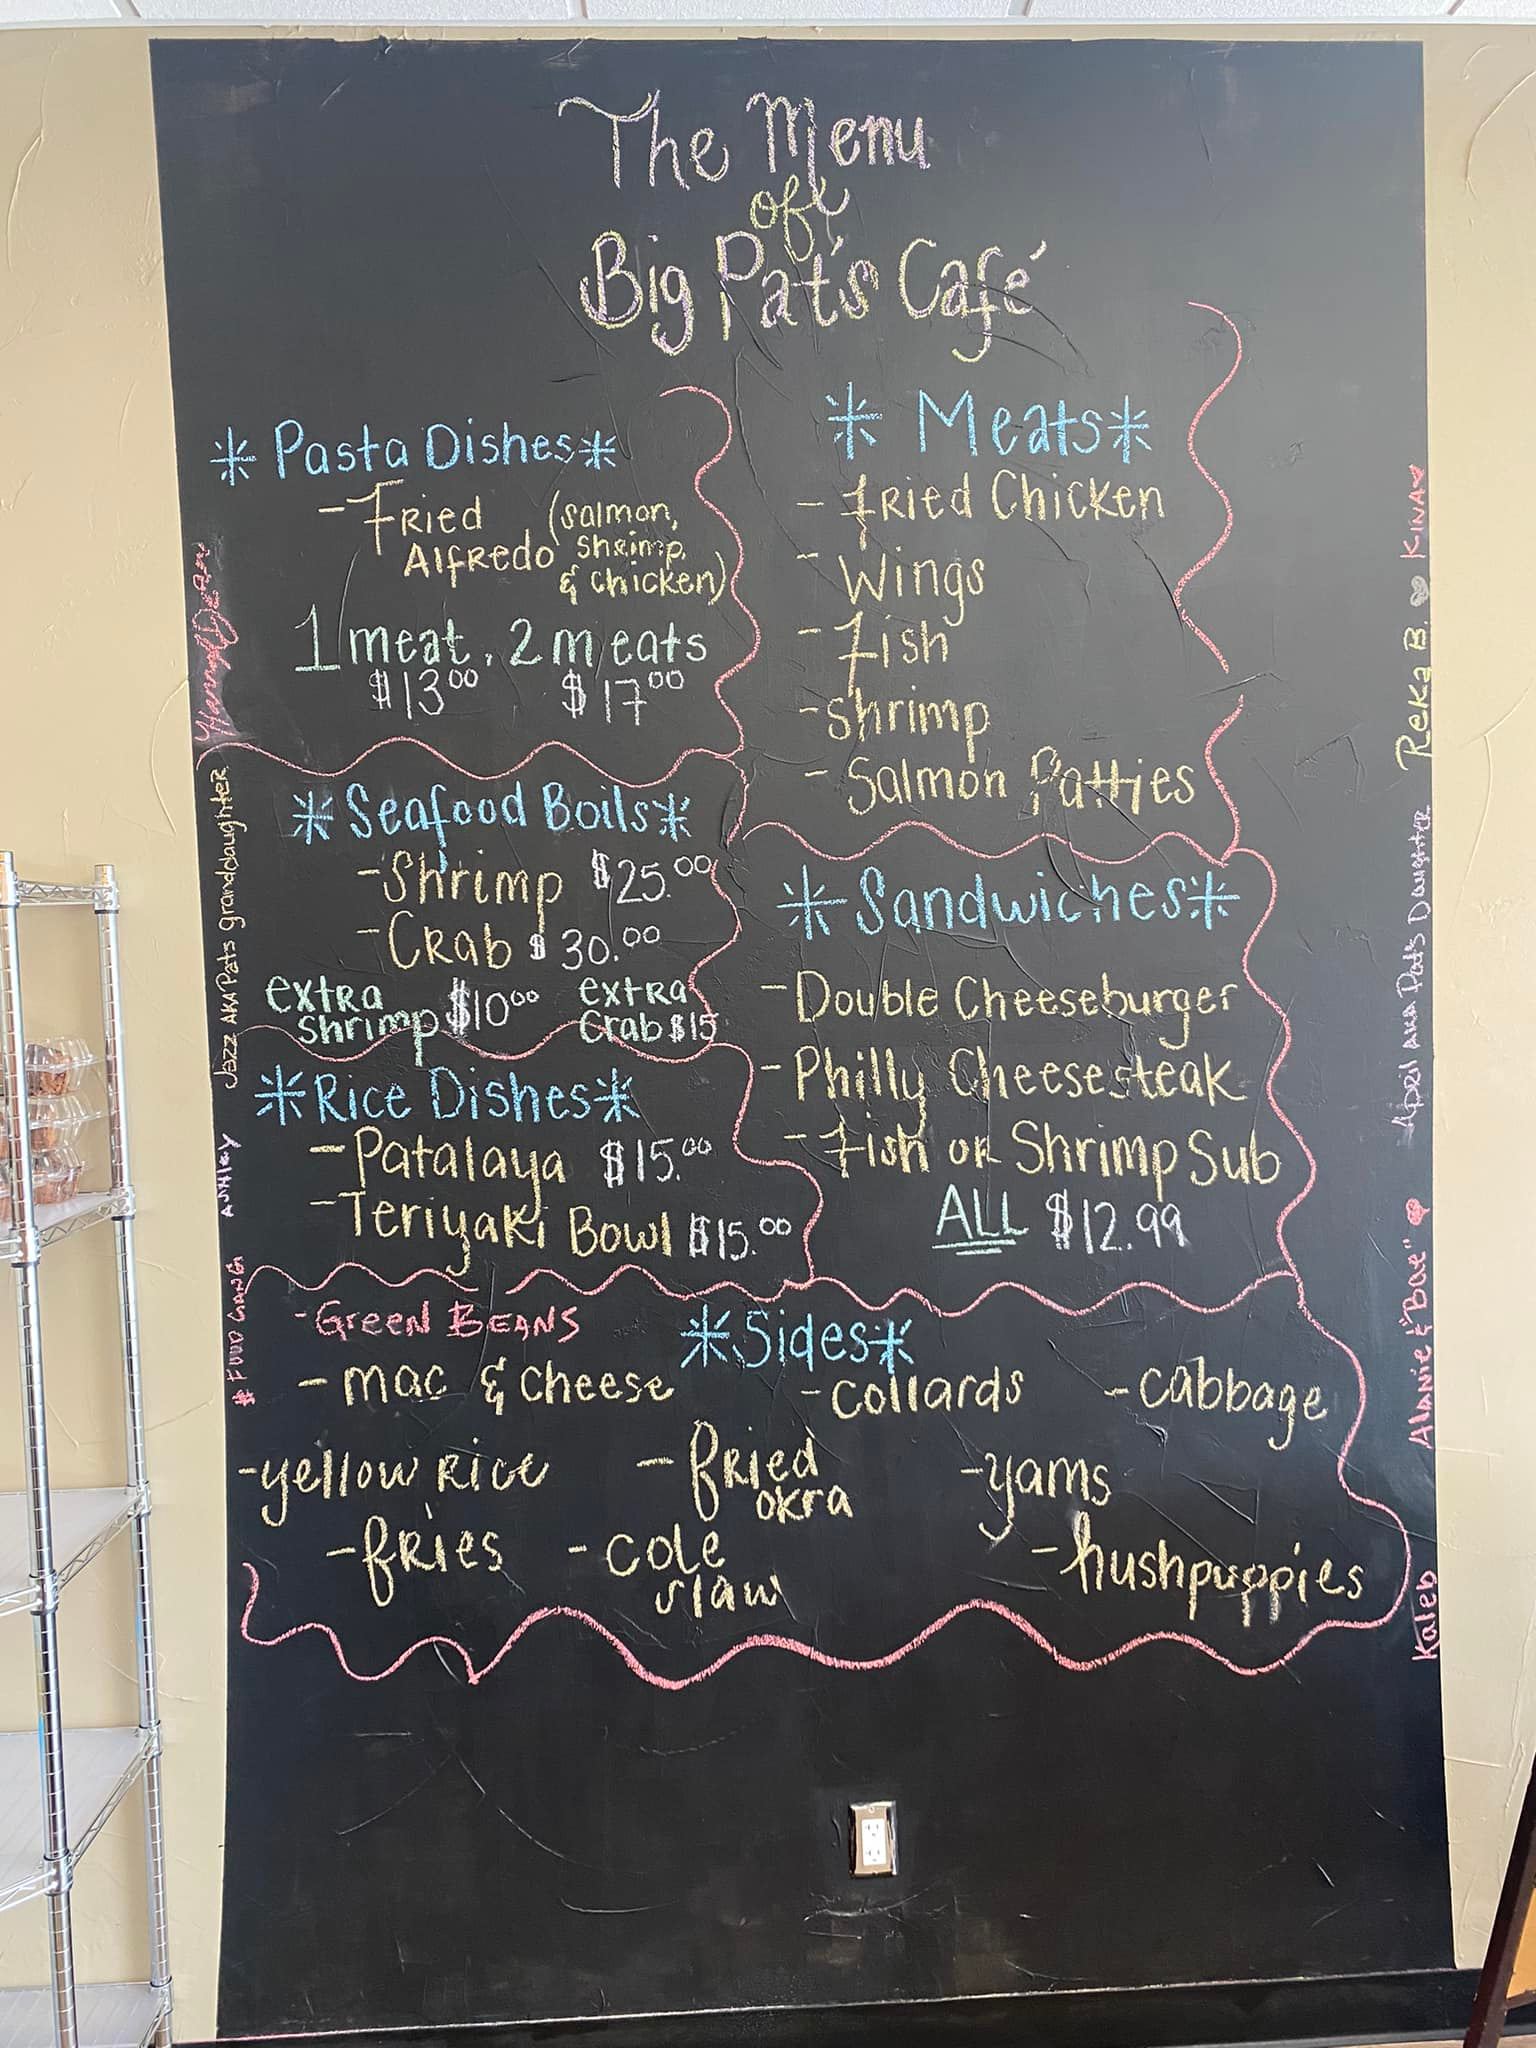 The Menu
of
Big Pat's Café
* Pasta Dishes *
- Fried Alfredo (salmon, shrimp, & chicken)
1 meat, 2 meats
$13.00 $17.00
* Seafood Boils *
- Shrimp $25.00
- Crab $30.00
extra shrimp $10.00 extra crab $15
* Rice Dishes *
- Patalaya $15.00
- Teriyaki Bowl $15.00
* Meats *
- Fried Chicken
- Wings
- Fish
- shrimp
- Salmon Patties
* Sandwiches *
- Double Cheeseburger
- Philly Cheesesteak
- Fish or Shrimp Sub
ALL $12.99
* Sides *
- Green Beans
- mac & cheese - collards - cabbage
- yellow rice - fried okra - yams
- fries - cole slaw - hushpuppies
Jazz AKA Pats granddaughter
Ashley
# Food Gang
Reka B. ♥ Kina ♥
April AKA Pat's Daughter
Alanie & "Bae"
Kaleb